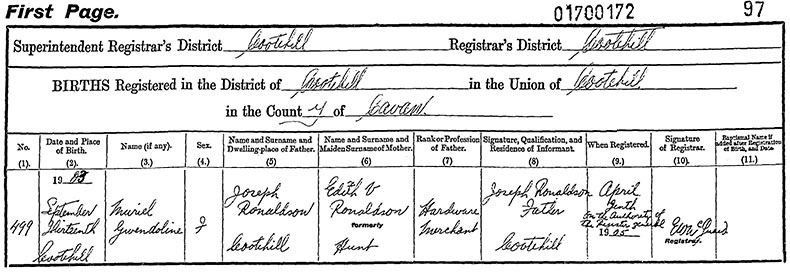 First Page. 01700172 97
Superintendent Registrar's District Cootehill Registrar's District Cootehill
BIRTHS Registered in the District of Cootehill in the Union of Cootehill
in the County of Cavan.
No. Date and Place of Birth. Name (if any). Sex. Name and Surname and Dwelling-place of Father. Name and Surname and Maiden Surname of Mother. Rank or Profession of Father. Signature, Qualification, and Residence of Informant. When Registered. Signature of Registrar. Baptismal Name if added after Registration of Birth, and Date
(1). (2). (3.) (4.) (5) (6) (7.) (8) (9.) (10). (11.)
1903
Joseph Edith V Joseph Ronaldson April
September Muriel Ronaldson Ronaldson Hardware Father Tenth
499 Thirteenth Gwendoline F formerly Merchant on the authority of
the Registrar General
Cootehill Cootehill Hunt Cootehill 1905
Registrar.